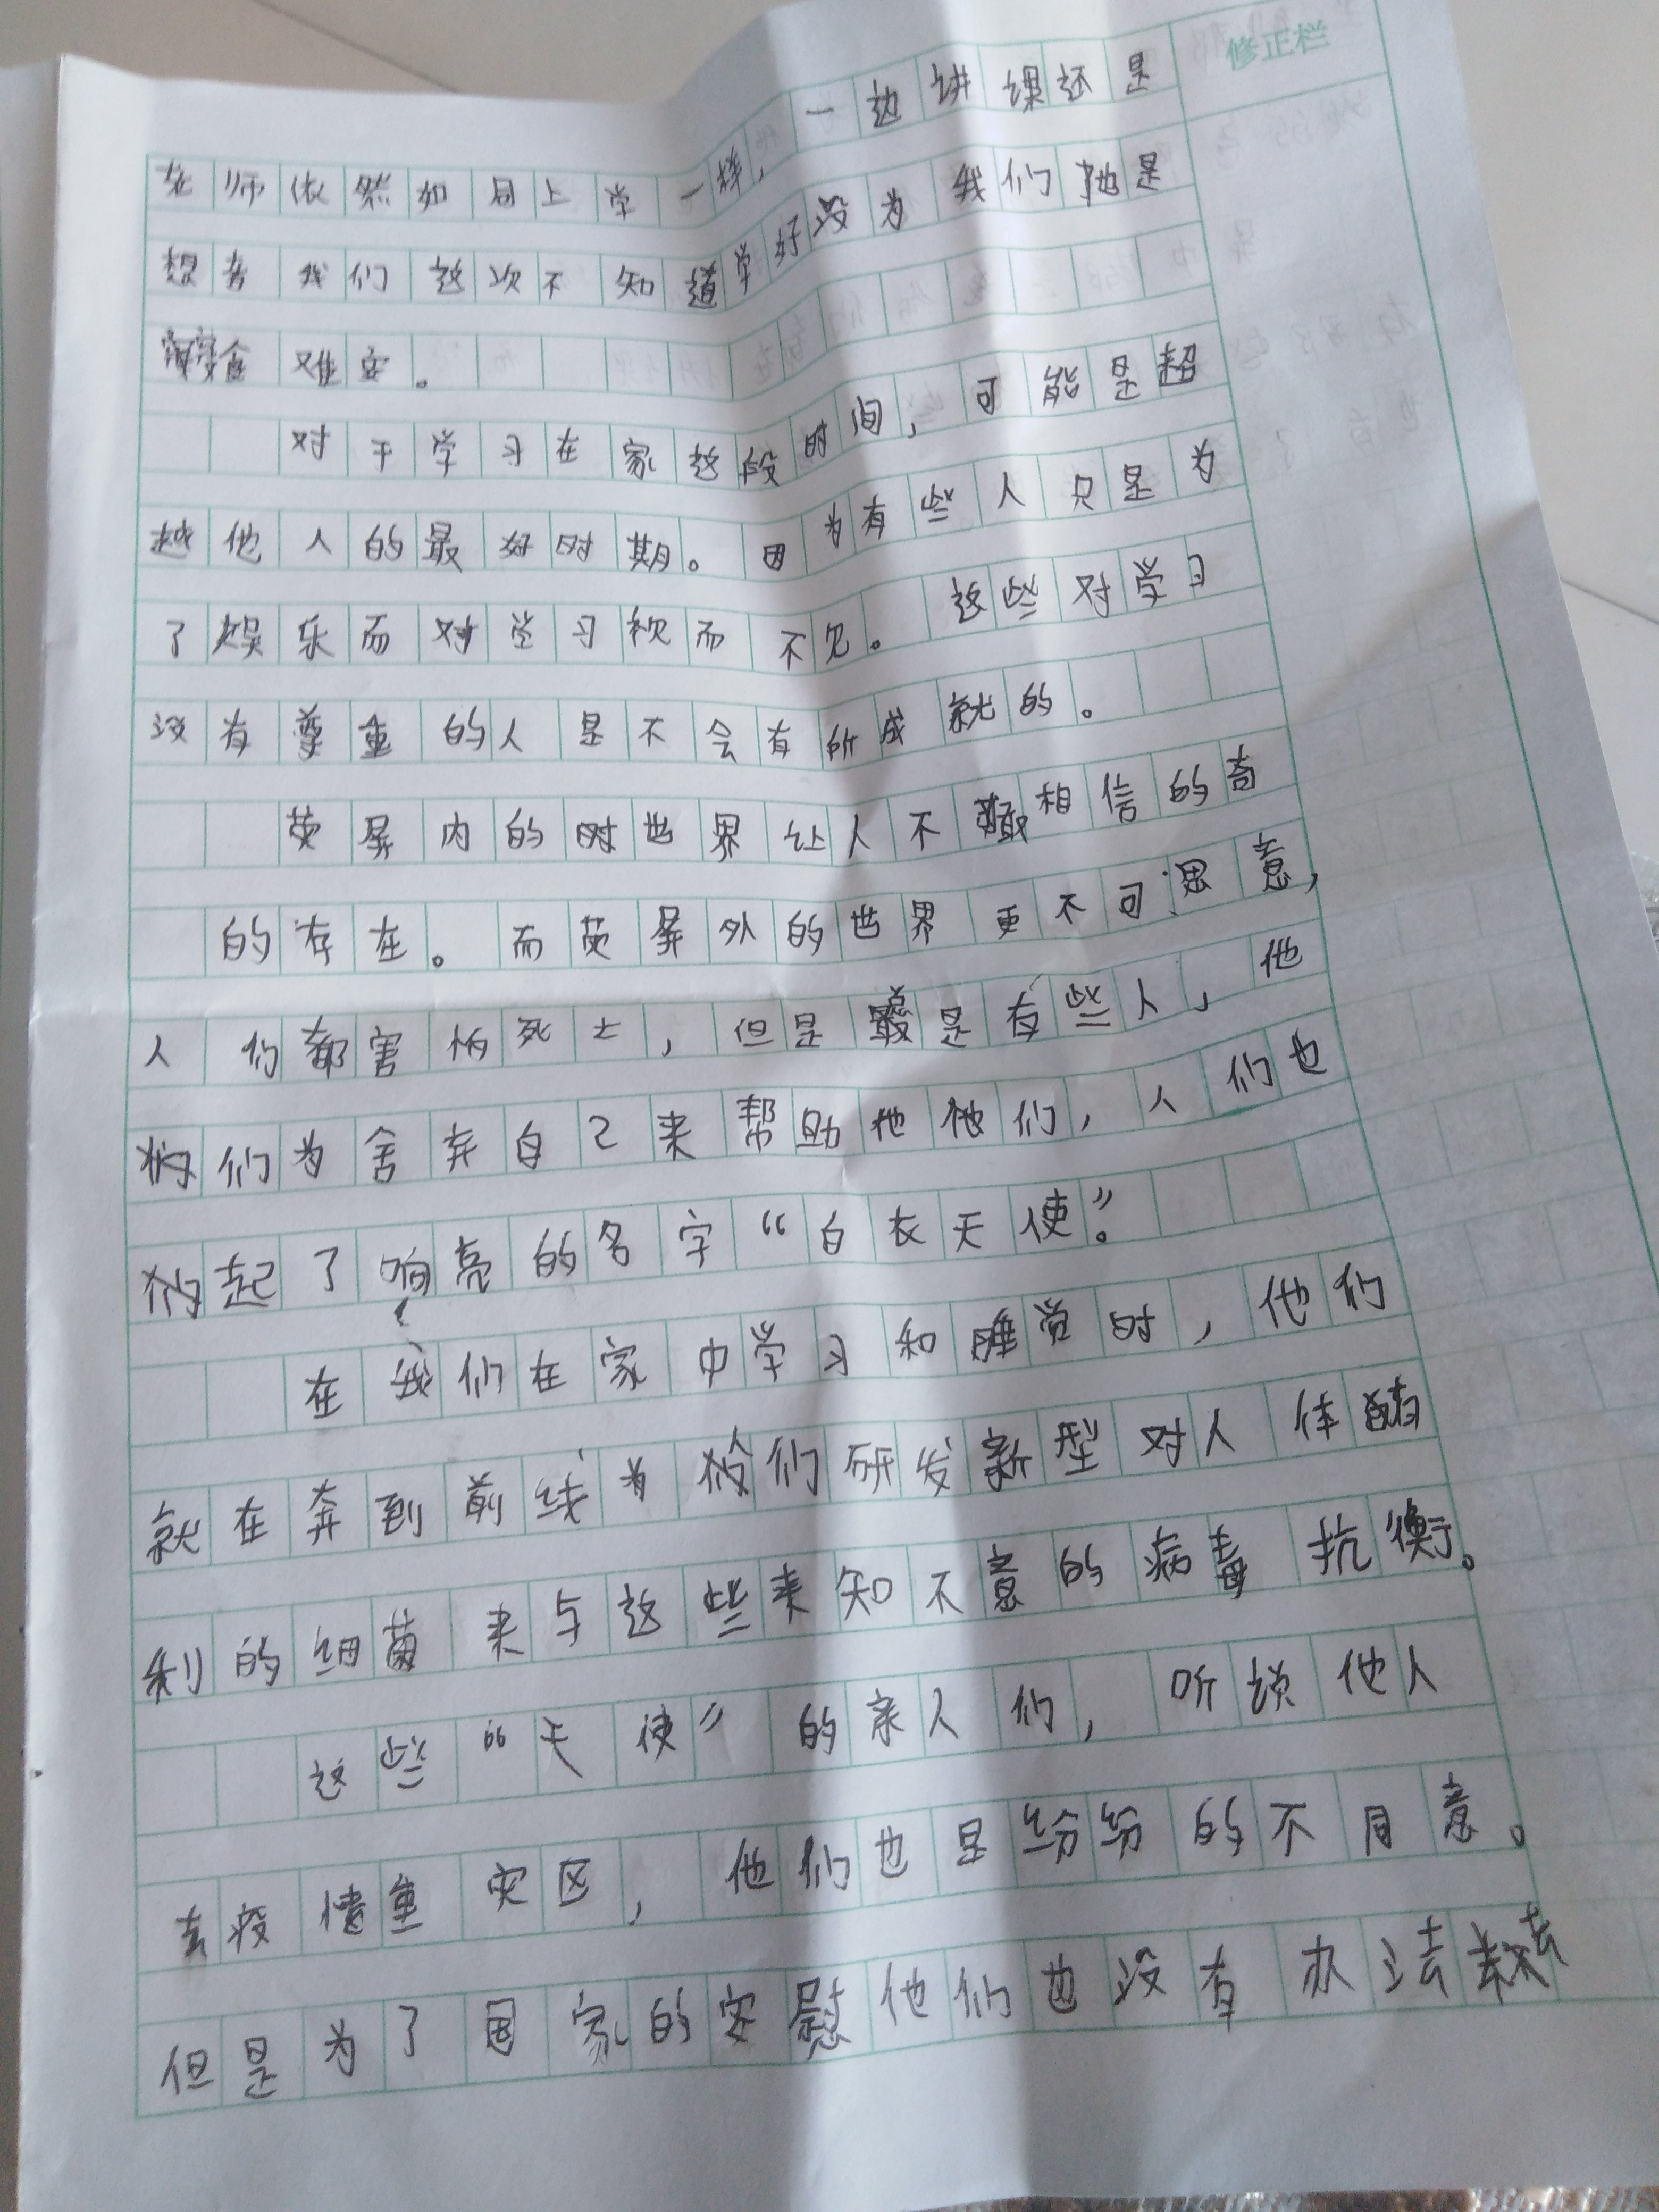 修正栏
老师依然如同上学一样，一边讲课还是
想着我们这次不知道学好没为我们她是
寝食难安。
对于学习在家这段时间，可能是超
越他人的最好时期。因为有些人只是为
了娱乐而对学习视而不见。这些对学习
没有尊重的人是不会有所成就的。
荧屏内的时世界让人不敢相信的奇
的存在。而荧屏外的世界更不可思意，
人们都害怕死亡，但是是有些人，他
们为舍弃自己来帮助他他们，人们也
起了响亮的名字“白衣天使”。
在我们在家中学习和睡觉时，他们
就在奔到前线为们研发新型对人体有
利的细菌来与这些来知不意的病毒抗衡。
这些“天使”的亲人们，听说他人
去疫情重灾区，他们也是纷纷的不同意。
但是为了国家的安慰他们也没有办法